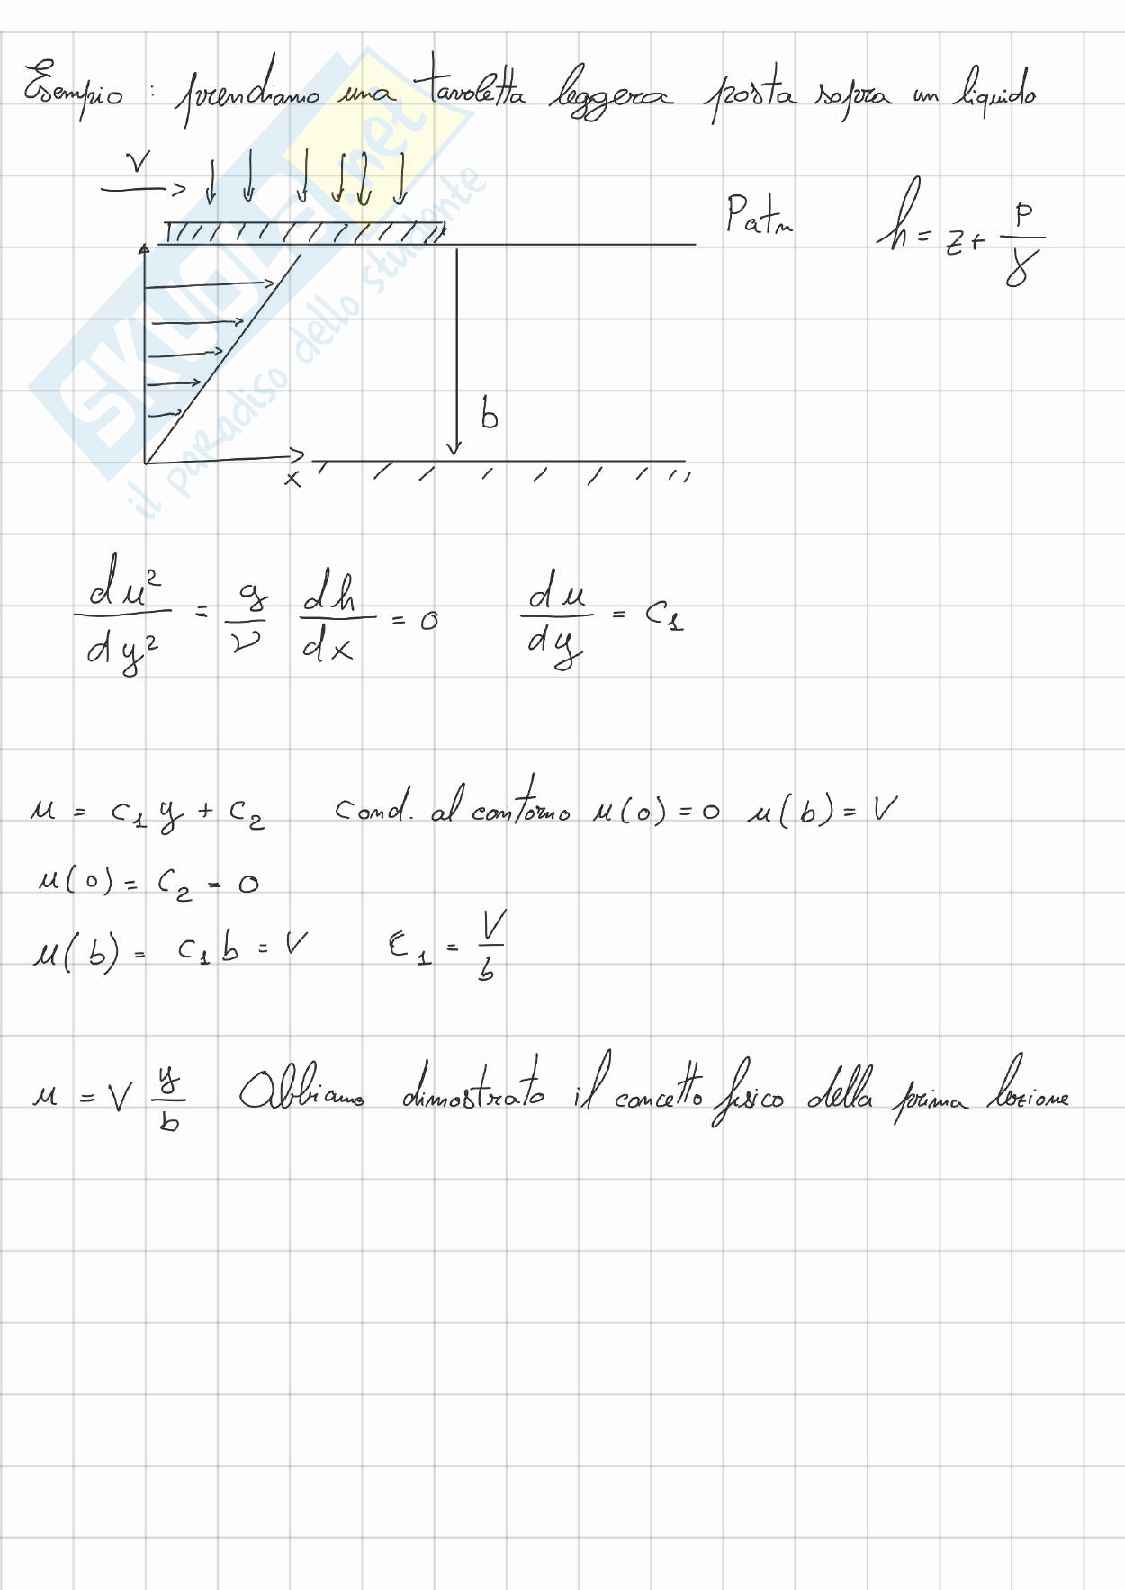 Esempio : prendiamo una tavoletta leggera posta sopra un liquido
V
Patm h = z + P/γ
b
x
du²/dy² = g/ν dh/dx = 0 du/dy = C₁
u = C₁ y + C₂ Cond. al contorno u(0) = 0 u(b) = V
u(0) = C₂ = 0
u(b) = C₁ b = V C₁ = V/b
u = V y/b Abbiamo dimostrato il concetto fisico della prima lezione
SKUOLA.net
il paradiso dello studente